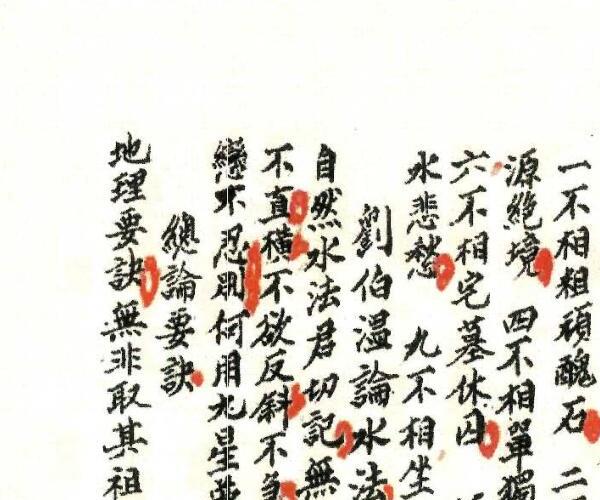 一不相粗頑醜石 二
源絕境 四不相單獨
六不相宅墓休囚
水悲愁 九不相坐
劉伯溫論水法
自然水法君切記無
不直橫不欲反斜不
戀不忍則何用九星
總論要訣
地理要訣無非取其祖